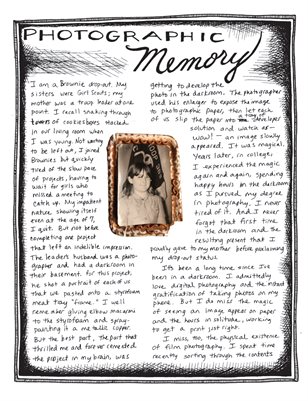 PHOTOGRAPHIC
Memory
I am a Brownie dropout. My
sisters were Girl Scouts; my
mother was a troop leader at one
point. I recall snaking through
towers of cookie boxes stacked
in our living room when
I was young. Not wanting
to be left out, I joined
Brownies but quickly
tired of the slow pace
of projects, having to
wait for girls who
missed a meeting to
catch up. My impatient
nature showing itself
even at the age of 7,
I quit. But not before
completing one project
that left an indelible impression.
The leader's husband was a photo-
grapher and had a darkroom in
their basement. For this project,
he shot a portrait of each of us
that we pasted onto a styrofoam
meat tray "frame." I well
remember gluing elbow macaroni
to the styrofoam and spray-
painting it a metallic copper.
But the best part, the part that
thrilled me and forever cemented
the project in my brain, was
getting to develop the
photo in the darkroom. The photographer
used his enlarger to expose the image
to photographic paper, then let each
of us slip the paper into a tray of developer
solution and watch as—
wow!— an image slowly
appeared. It was magical.
Years later, in college,
I experienced the magic
again and again, spending
happy hours in the darkroom
as I pursued my degree
in photography. I never
tired of it. And I never
forgot that first time
in the darkroom and the
resulting present that I
proudly gave to my mother before proclaiming
my dropout status.
It's been a long time since I've
been in a darkroom. I admittedly
love digital photography and the instant
gratification of taking photos on my
phone. But I do miss the magic
of seeing an image appear on paper
and the hours in solitude, working
to get a print just right.
I miss, too, the physical existence
of film photography. I spend time
recently sorting through the contents